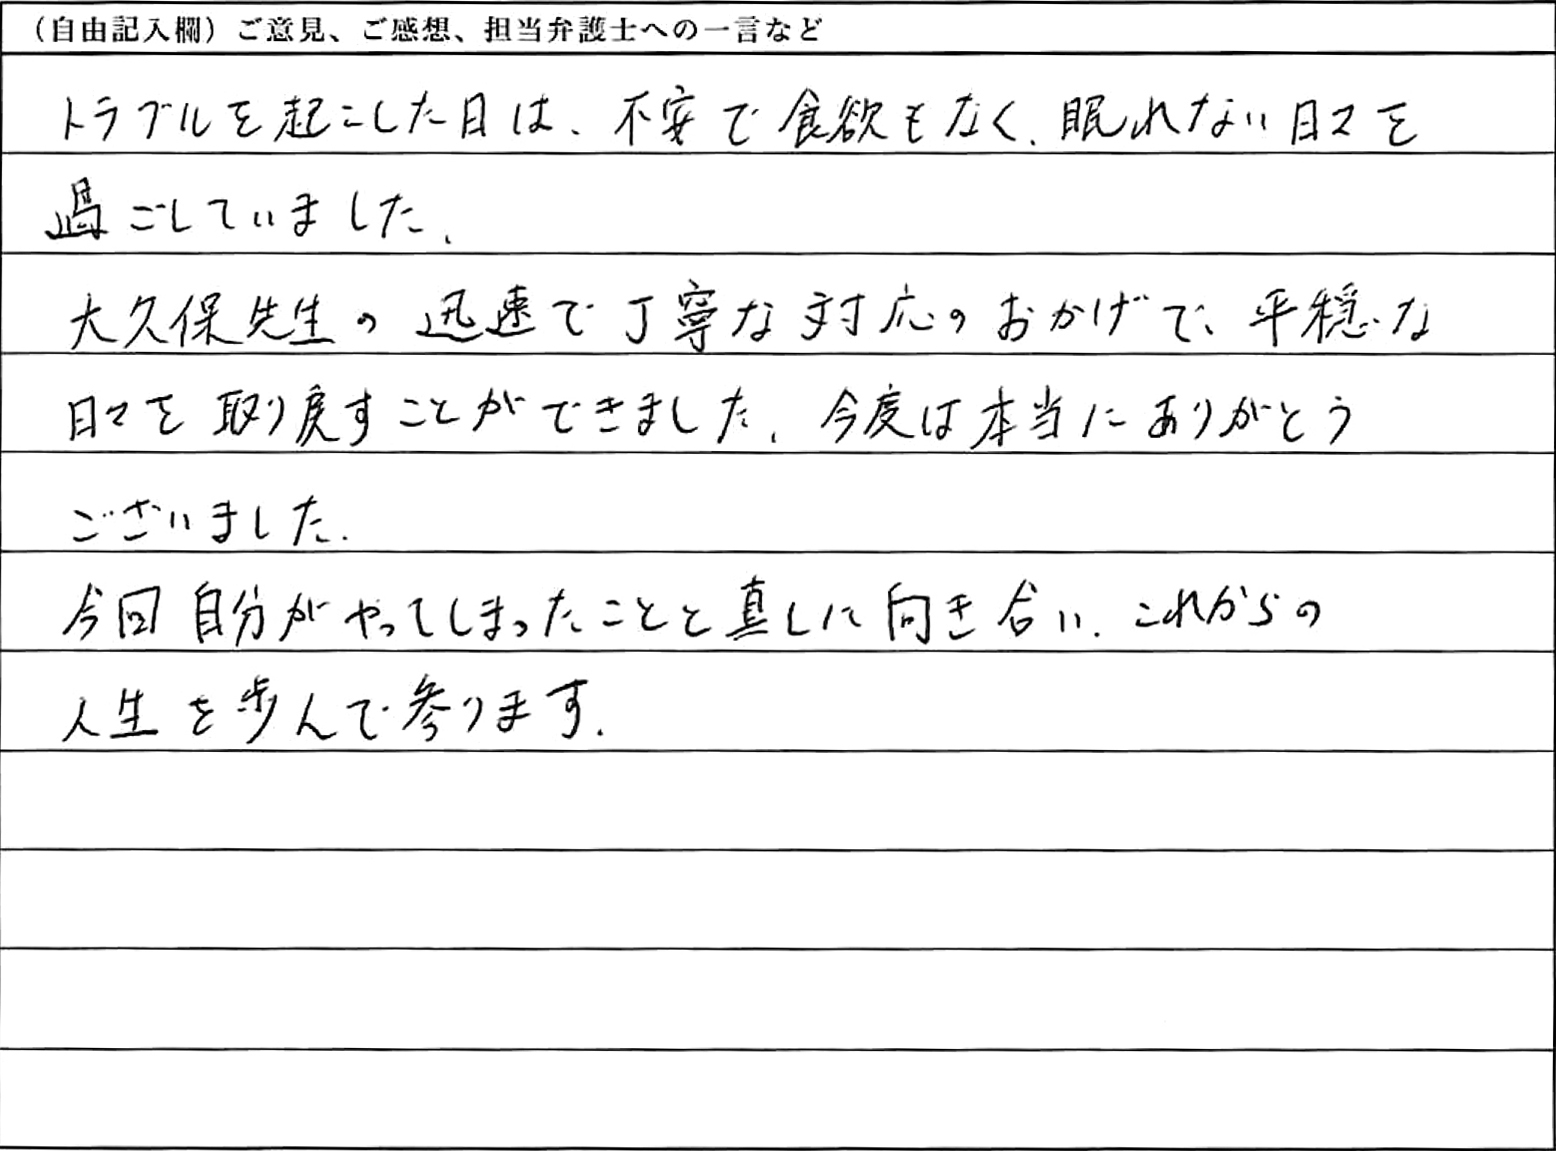 （自由記入欄）ご意見、ご感想、担当弁護士への一言など
トラブルを起こした日は、不安で食欲もなく、眠れない日々を
過ごしていました。
大久保先生の迅速で丁寧な対応のおかげで、平穏な
日々を取り戻すことができました。今度は本当にありがとう
ございました。
今回自分がやってしまったことと真しに向き合い、これからの
人生を歩んで参ります。